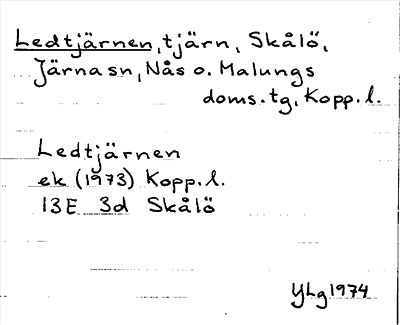 Ledtjärnen, tjärn, Skålö,
Järnasn, Nås o. Malungs
doms.tg, Kopp.l.
Ledtjärnen
ek (1973) Kopp.l.
13E 3d Skålö
YLg 1974